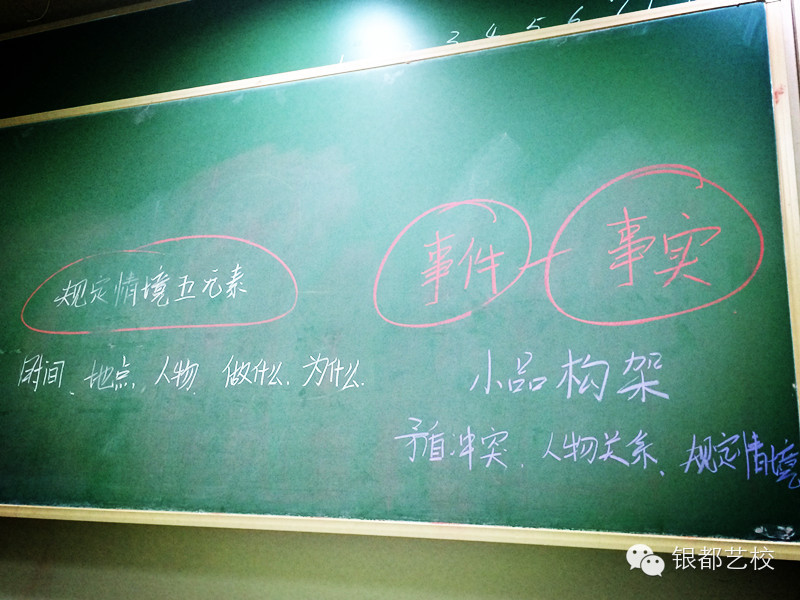 3 4 5 6
事件 — 事实
规定情境五元素
时间、地点、人物、做什么、为什么.
小品构架
矛盾冲突、人物关系、规定情境
银都艺校